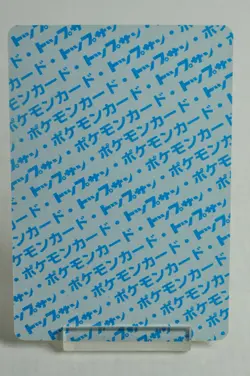 トップサン・
ポケモンカード・トップサン
トップサン・ポケモンカード・
ポケモンカード・トップサン・
トップサン・ポケモンカード・トップサン
ポケモンカード・トップサン・
トップサン・ポケモンカード・
ポケモンカード・トップサン・
トップサン・ポケモンカード・トップサン
ポケモンカード・トップサン・
トップサン・ポケモンカード・
ポケモンカード・トップサン・
トップサン・ポケモンカード・
ポケモンカード・トップサン
トップサン・ポケモンカード
ポケモンカード